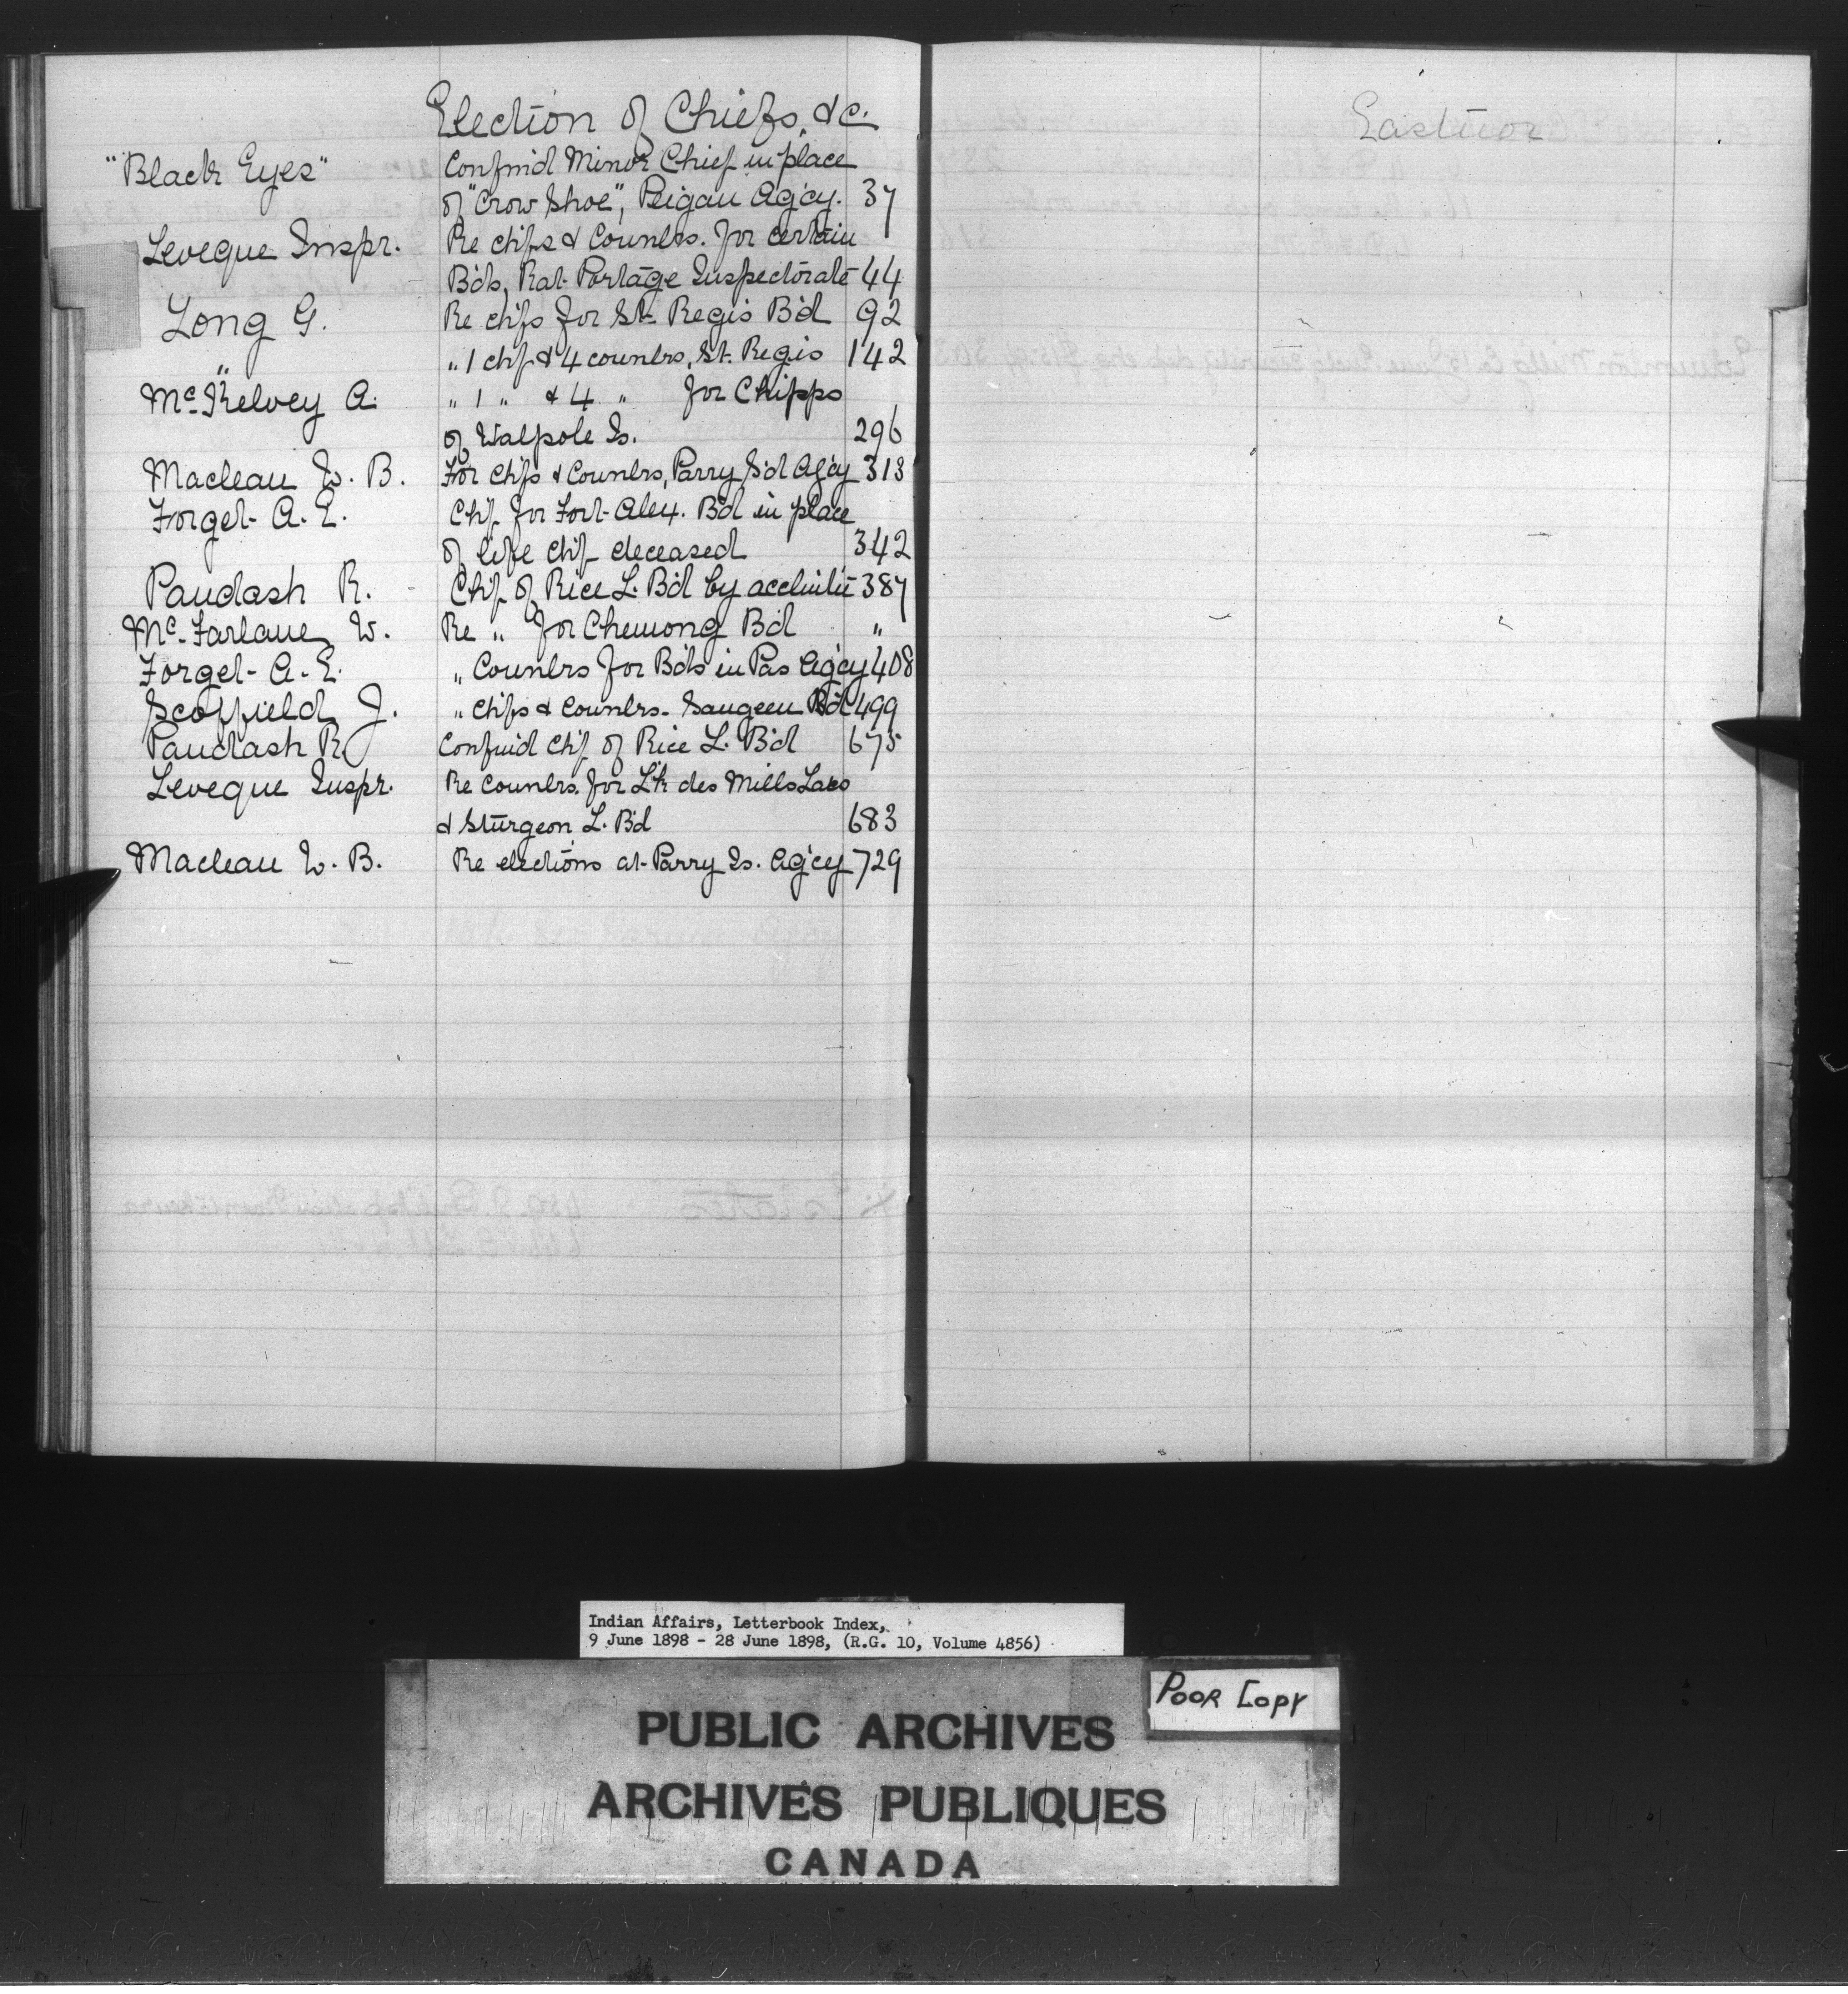 Election of Chiefs, &c.
"Black Eyes" Confm'd Minor Chief in place
of "Crow Shoe", Peigan Ag'cy. 37
Leveque Inspr. Re chfs & Counclrs. for certain
B'ds, Rat Portage Inspectorate 44
Long G. Re chfs for St. Regis B'd 92
" " 1 chf & 4 counclrs, St. Regis 142
McKelvey A. " 1 " & 4 " for Chipps
of Walpole Is. 296
Maclean W. B. For Chfs & Counclrs, Parry S'd Ag'cy 313
Forget A. E. Chf for Fort Alex. B'd in place
of life chf deceased 342
Paudash R. Chf of Rice L. B'd by 387
McFarlane W. Re " for Chemong B'd "
Forget A. E. " Counclrs for B'ds in Pas Ag'cy 408
Scoffield J. " Chfs & Counclrs. Saugeen B'd 499
Paudash R. Confm'd Chf of Rice L. B'd 675
Leveque Inspr. Re Counclrs. for des Mills Lacs
& Sturgeon L. B'd 683
Maclean W. B. Re elections at Parry Is. Ag'cy 729
Eastnor
Indian Affairs, Letterbook Index,
9 June 1898 - 28 June 1898, (R.G. 10, Volume 4856)
POOR COPY
PUBLIC ARCHIVES
ARCHIVES PUBLIQUES
CANADA